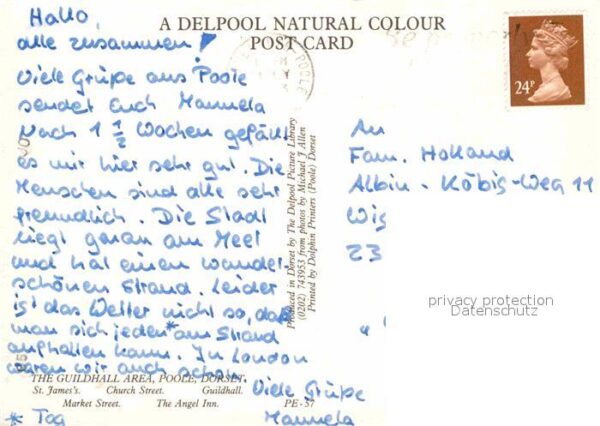 A DELPOOL NATURAL COLOUR
POST CARD
24P
POOLE
Hallo,
alle zusammen!
Viele Grüße aus Poole
sendet Euch Manuela
Nach 1 1/2 Wochen gefällt
es mir hier sehr gut. Die
Menschen sind alle sehr
freundlich. Die Stadt
liegt genau am Meer
und hat einen wunder-
schönen Strand. Leider
ist das Wetter nicht so, daß
man sich jeden * am Strand
aufhalten kann. In London
waren wir auch schon.
Viele Grüße
Manuela
* Tag
Produced in Dorset by The Delpool Picture Library
(0202) 743953 from photos by Michael J Allen
Printed by Dolphin Printers (Poole) Dorset
An
Fam. Holland
Albin-Köbis-Weg 11
Wis
23
privacy protection
Datenschutz
THE GUILDHALL AREA, POOLE, DORSET.
St. James's. Church Street. Guildhall.
Market Street. The Angel Inn. PE-37